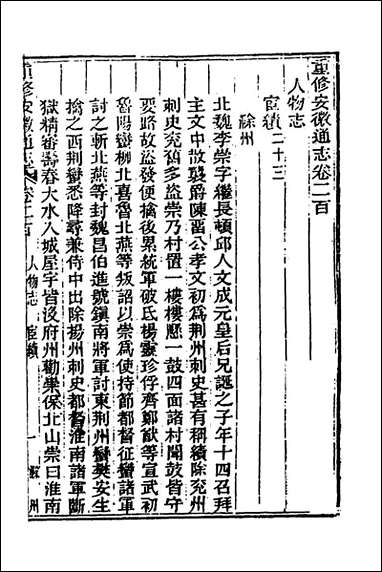 重修安徽通志卷二百
人物志
宦績二十三
滁州
北魏李崇字繼長頓邱人文成元皇后兄誕之子年十四召拜
主文中散襲爵陳畱公孝文初為荆州刺史甚有稱績除兖州
刺史兖舊多盜崇乃村置一樓樓懸一鼓四面諸村聞鼓皆守
要路故盜發便擒後累統軍破氐楊靈珍俘齊鄭猷等宣武初
魯陽蠻柳北喜魯北燕等叛詔以崇為使持節都督征蠻諸軍
討之斬北燕等封魏昌伯進號鎮南將軍討東荆州蠻樊安生
擒之西荆蠻悉降尋兼侍中出除揚州刺史都督淮南諸軍斷
獄精審壽春大水入城屋宇皆沒府州勸崇保北山崇曰淮南
重修安徽通志 卷二百 人物志 宦績 一 滁州